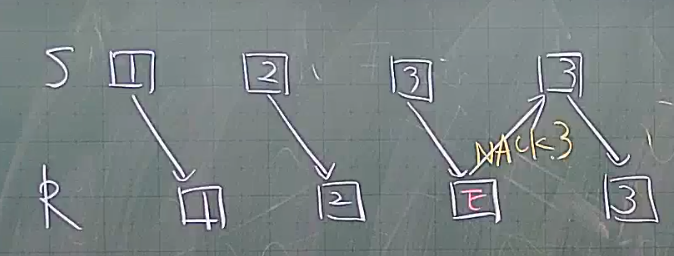 S 1 2 3 3
NACK 3
R 1 2 E 3